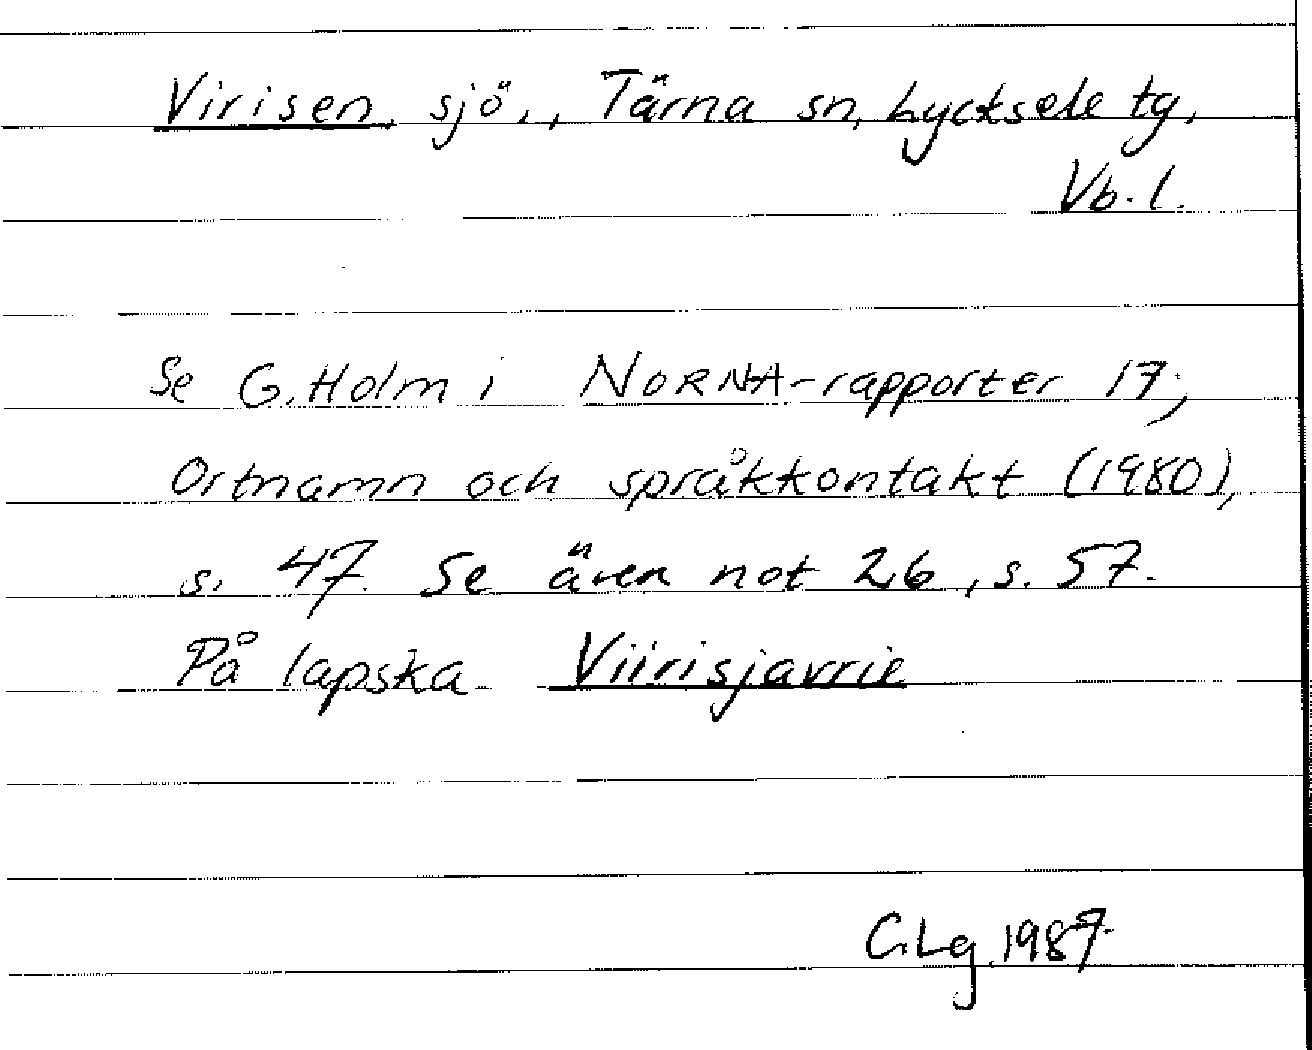 Virisen, sjö., Tärna sn, Lycksele tg,
Vb. l.
Se G. Holm i NORNA-rapporter 17;
Ortnamn och språkkontakt (1980),
s. 47. Se även not 26, s. 57.
På lapska Viirisjavrie
C.Lg. 1987